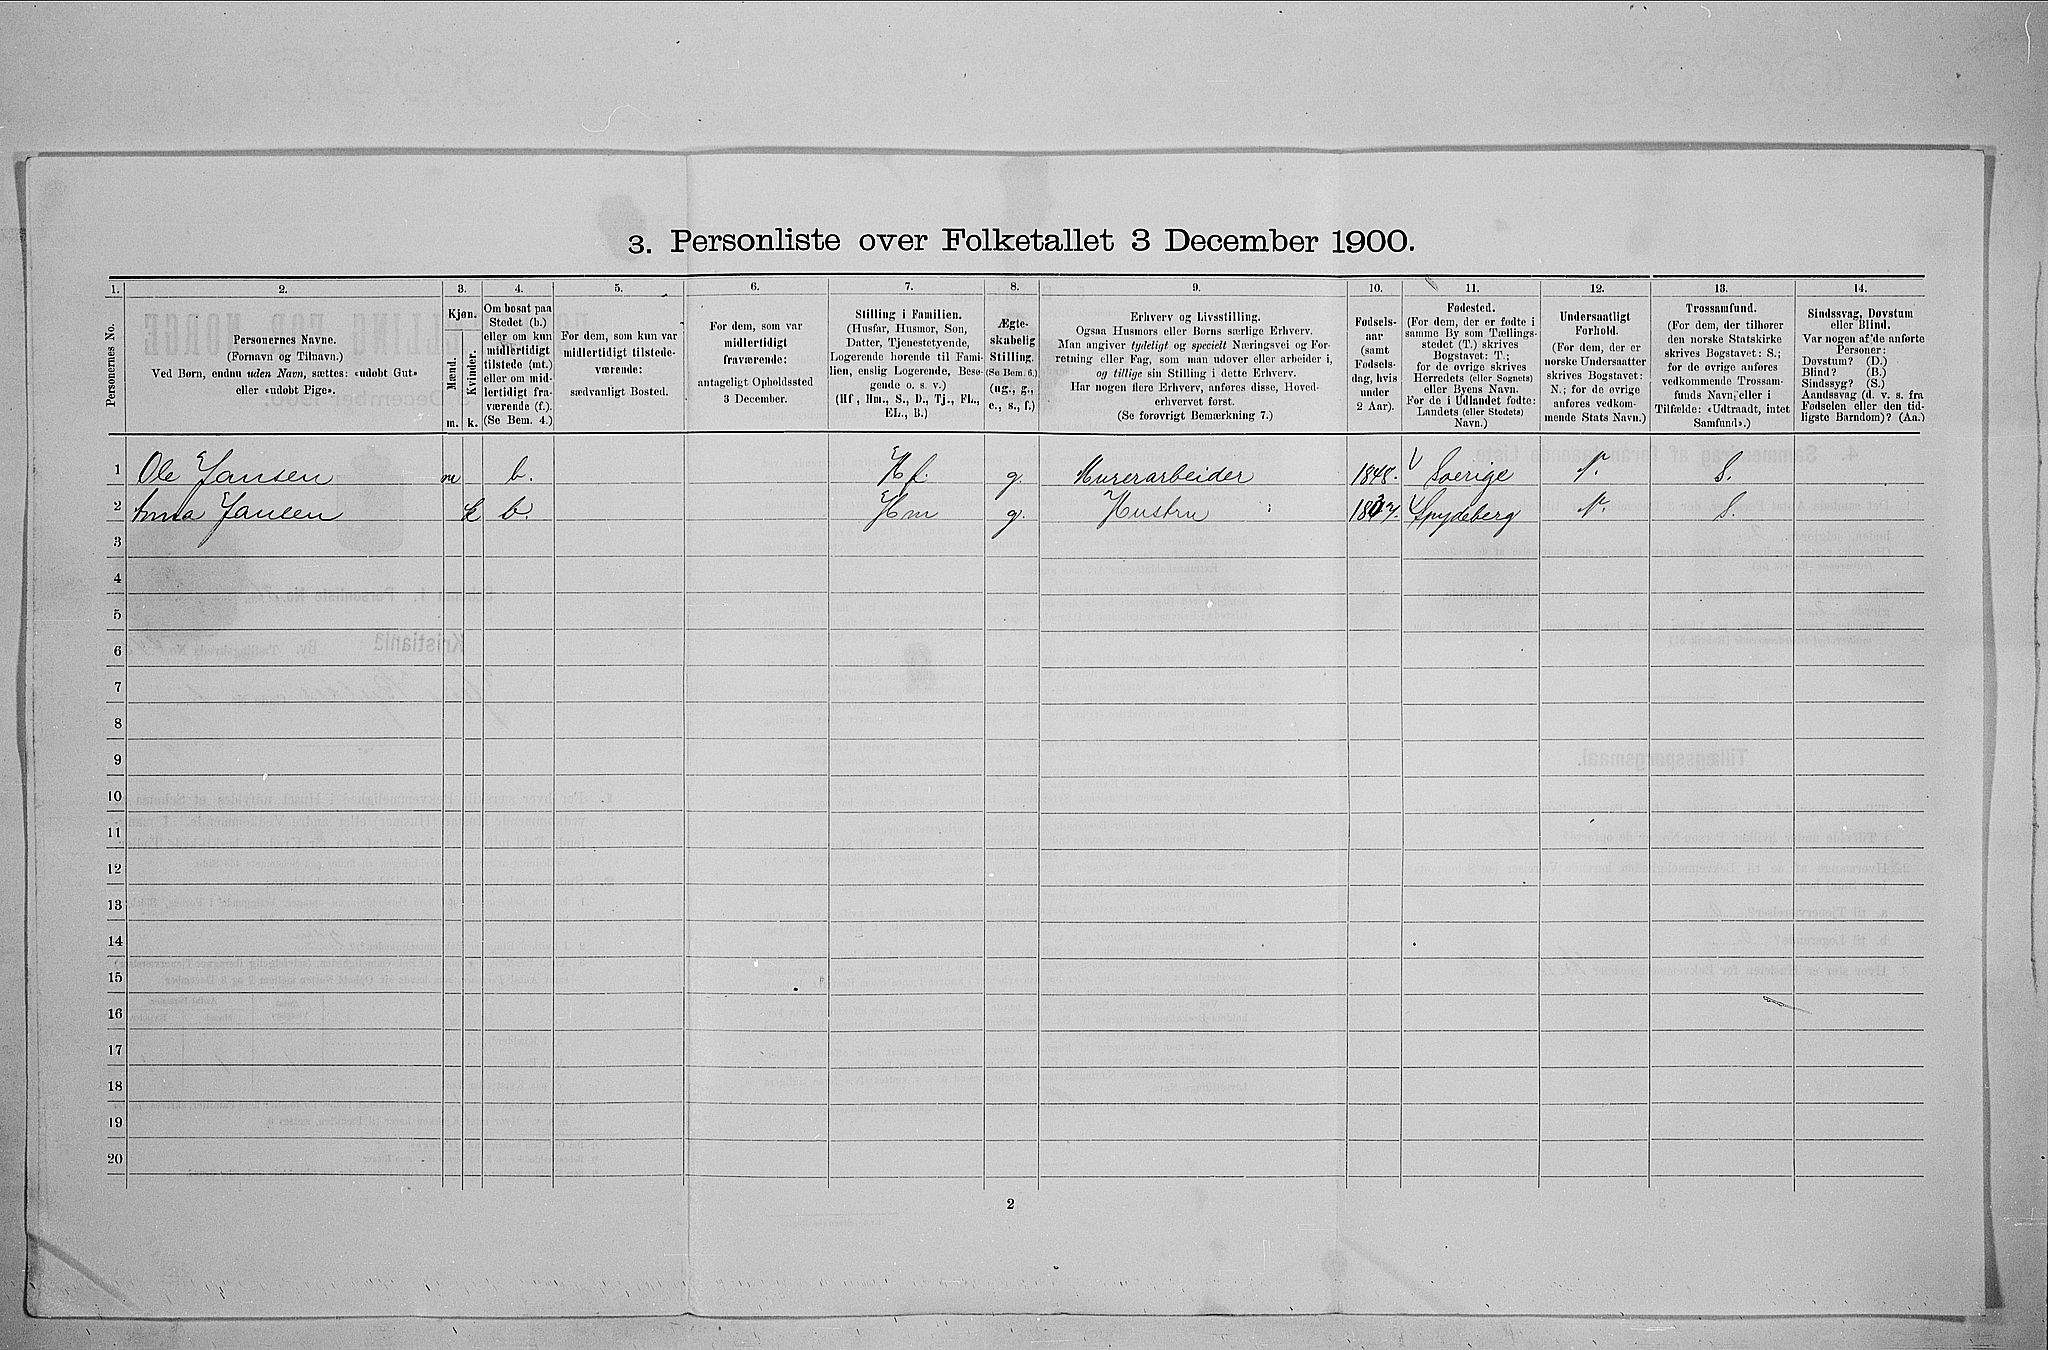 3. Personliste over Folketallet 3 December 1900.
1. 2. 3. 4. 5. 6. 7. 8. 9. 10. 11. 12. 13. 14.
Personernes No.
Personernes Navne.
(Fornavn og Tilnavn.)
Ved Børn, endnu uden Navn, sættes: «udøbt Gut»
eller «udøbt Pige».
Kjøn.
Mænd.
Kvinder.
m. k.
Om bosat paa
Stedet (b.)
eller om kun
midlertidigt
tilstede (mt.)
eller om mid-
lertidigt fra-
værende (f.).
(Se Bem. 4.)
For dem, som kun var
midlertidigt tilstede-
værende:
sædvanligt Bosted.
For dem, som var
midlertidigt
fraværende:
antageligt Opholdssted
3 December.
Stilling i Familien.
(Husfar, Husmor, Søn,
Datter, Tjenestetyende,
Logerende hørende til Fami-
lien, enslig Logerende, Besø-
gende o. s. v.)
(Hf., Hm., S., D., Tj., FL.,
EL., B.)
Ægte-
skabelig
Stilling.
(Se Bem. 6.)
(ug., g.,
e., s., f.)
Erhverv og Livsstilling.
Ogsaa Husmors eller Børns særlige Erhverv.
Man angiver tydeligt og specielt Næringsvei og For-
retning eller Fag, som man udover eller arbeider i,
og tillige sin Stilling i dette Erhverv.
Har nogen flere Erhverv, anføres disse, Hoved-
erhvervet først.
(Se forøvrigt Bemærkning 7.)
Fødsels-
aar
(samt
Fødsels-
dag, hvis
under
2 Aar).
Fødested.
(For dem, der er fødte i
samme By som Tællings-
stedet (T.) skrives
Bogstavet: T.;
for de øvrige skrives
Herredets (eller Sognets)
eller Byens Navn.
For de i Udlandet fødte:
Landets (eller Stedets)
Navn.)
Undersaatligt
Forhold.
(For dem, der er
norske Undersaatter
skrives Bogstavet:
N.; for de øvrige
anføres vedkom-
mende Stats Navn.)
Trossamfund.
(For dem, der tilhører
den norske Statskirke
skrives Bogstavet: S.;
for de øvrige anføres
vedkommende Trossam-
funds Navn, eller i
Tilfælde: «Udtraadt, intet
Samfund».)
Sindssvag, Døvstum
eller Blind.
Var nogen af de anførte
Personer:
Døvstum? (D.)
Blind? (B.)
Sindssyg? (S.)
Aandssvag (d. v. s. fra
Fødselen eller den tid-
ligste Barndom)? (Aa.)
1 Ole Jansen m b. Hf. g. Murerarbeider 1848. Sverige N. S.
2 Anna Jansen k b. Hm g. Hustru Spydeberg N. S.
3
4
5
6
7
8
9
10
11
12
13
14
15
16
17
18
19
20
2